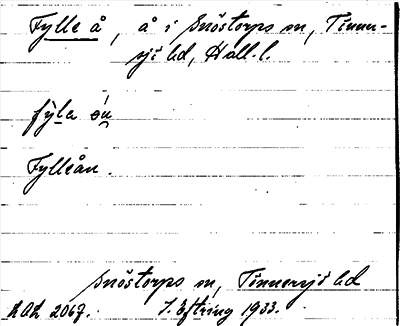 Fylle å, å i Snöstorps sn, Tönner-
sjö hd, Hall. l.
fy̆la ån
Fylleån.
Snöstorps sn, Tönnersjö hd
LAL 2067. I. Eftring 1933.